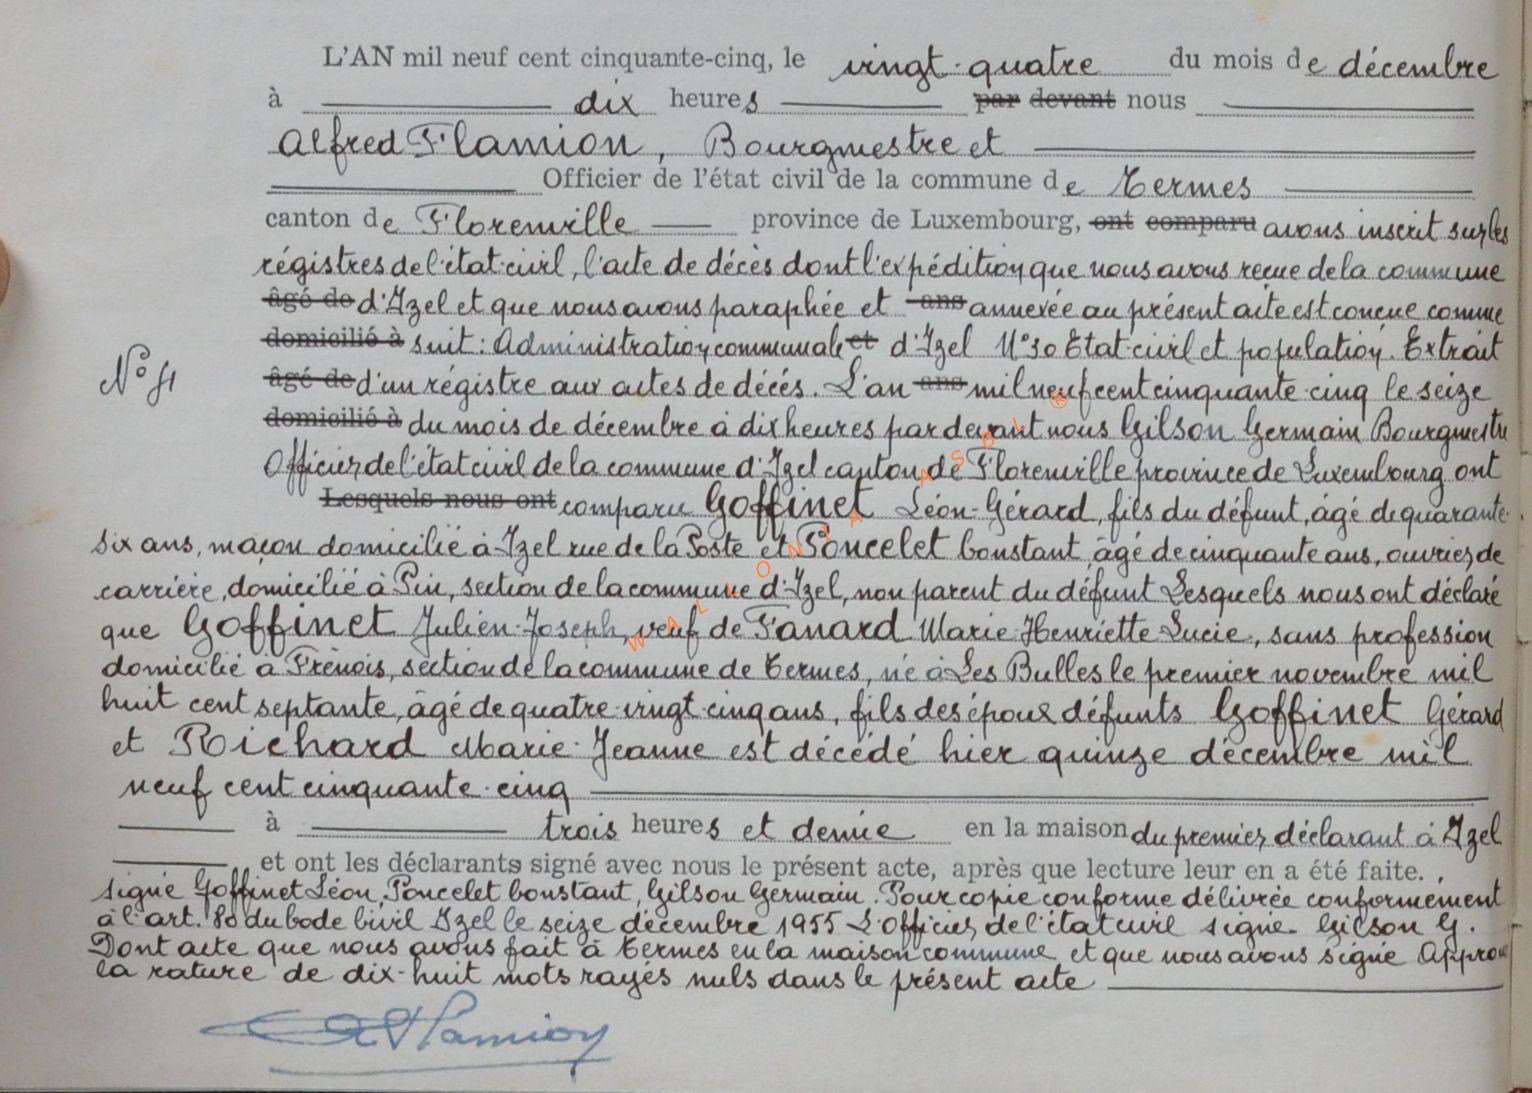 L'AN mil neuf cent cinquante-cinq, le vingt-quatre du mois de décembre
à dix heures par devant nous
Alfred Flamion, Bourgmestre et
Officier de l'état civil de la commune de Termes
canton de Florenville province de Luxembourg, ont comparu avons inscrit sur les
régistres de l'état-civil, l'acte de décès dont l'expédition que nous avons reçue de la commune
âgé de d'Izel et que nous avons paraphée et ans annexée au présent acte est conçue comme
domicilié à suit : Administration communale et d'Izel N°30 Etat-civil et population. Extrait
N° 11
âgé de d'un régistre aux actes de décés. L'an ans mil neuf cent cinquante-cinq le seize
domicilié à du mois de décembre à dix heures par devant nous Gilson Germain Bourgmestre
Officier de l'état civil de la commune d'Izel canton de Florenville province de Luxembourg ont
Lesquels nous ont comparu Goffinet Léon-Gérard, fils du défunt, âgé de quarante-
six ans, maçon domicilié à Izel rue de la Poste et Poncelet Constant, âgé de cinquante ans, ouvrier de
carrière, domicilié à Pin, section de la commune d'Izel, non parent du défunt Lesquels nous ont déclaré
que Goffinet Julien-Joseph, veuf de Fanard Marie-Henriette-Lucie, sans profession
domicilié à Frénois, section de la commune de Termes, né à Les Bulles le premier novembre mil
huit cent septante, âgé de quatre-vingt-cinq ans, fils des époux défunts Goffinet Gérard
et Richard Marie-Jeanne est décédé hier quinze décembre mil
neuf cent cinquante-cinq
à trois heures et demie en la maison du premier déclarant à Izel
et ont les déclarants signé avec nous le présent acte, après que lecture leur en a été faite.
signé Goffinet Léon, Poncelet Constant, Gilson Germain. Pour copie conforme délivrée conformement
à l'art. 80 du Code Civil Izel le seize décembre 1955 L'Officier de l'état civil signé Gilson G.
Dont acte que nous avons fait à Termes en la maison commune et que nous avons signé Approuvé
la rature de dix-huit mots rayés nuls dans le présent acte
A Flamion
WALLONIA ASBL ®